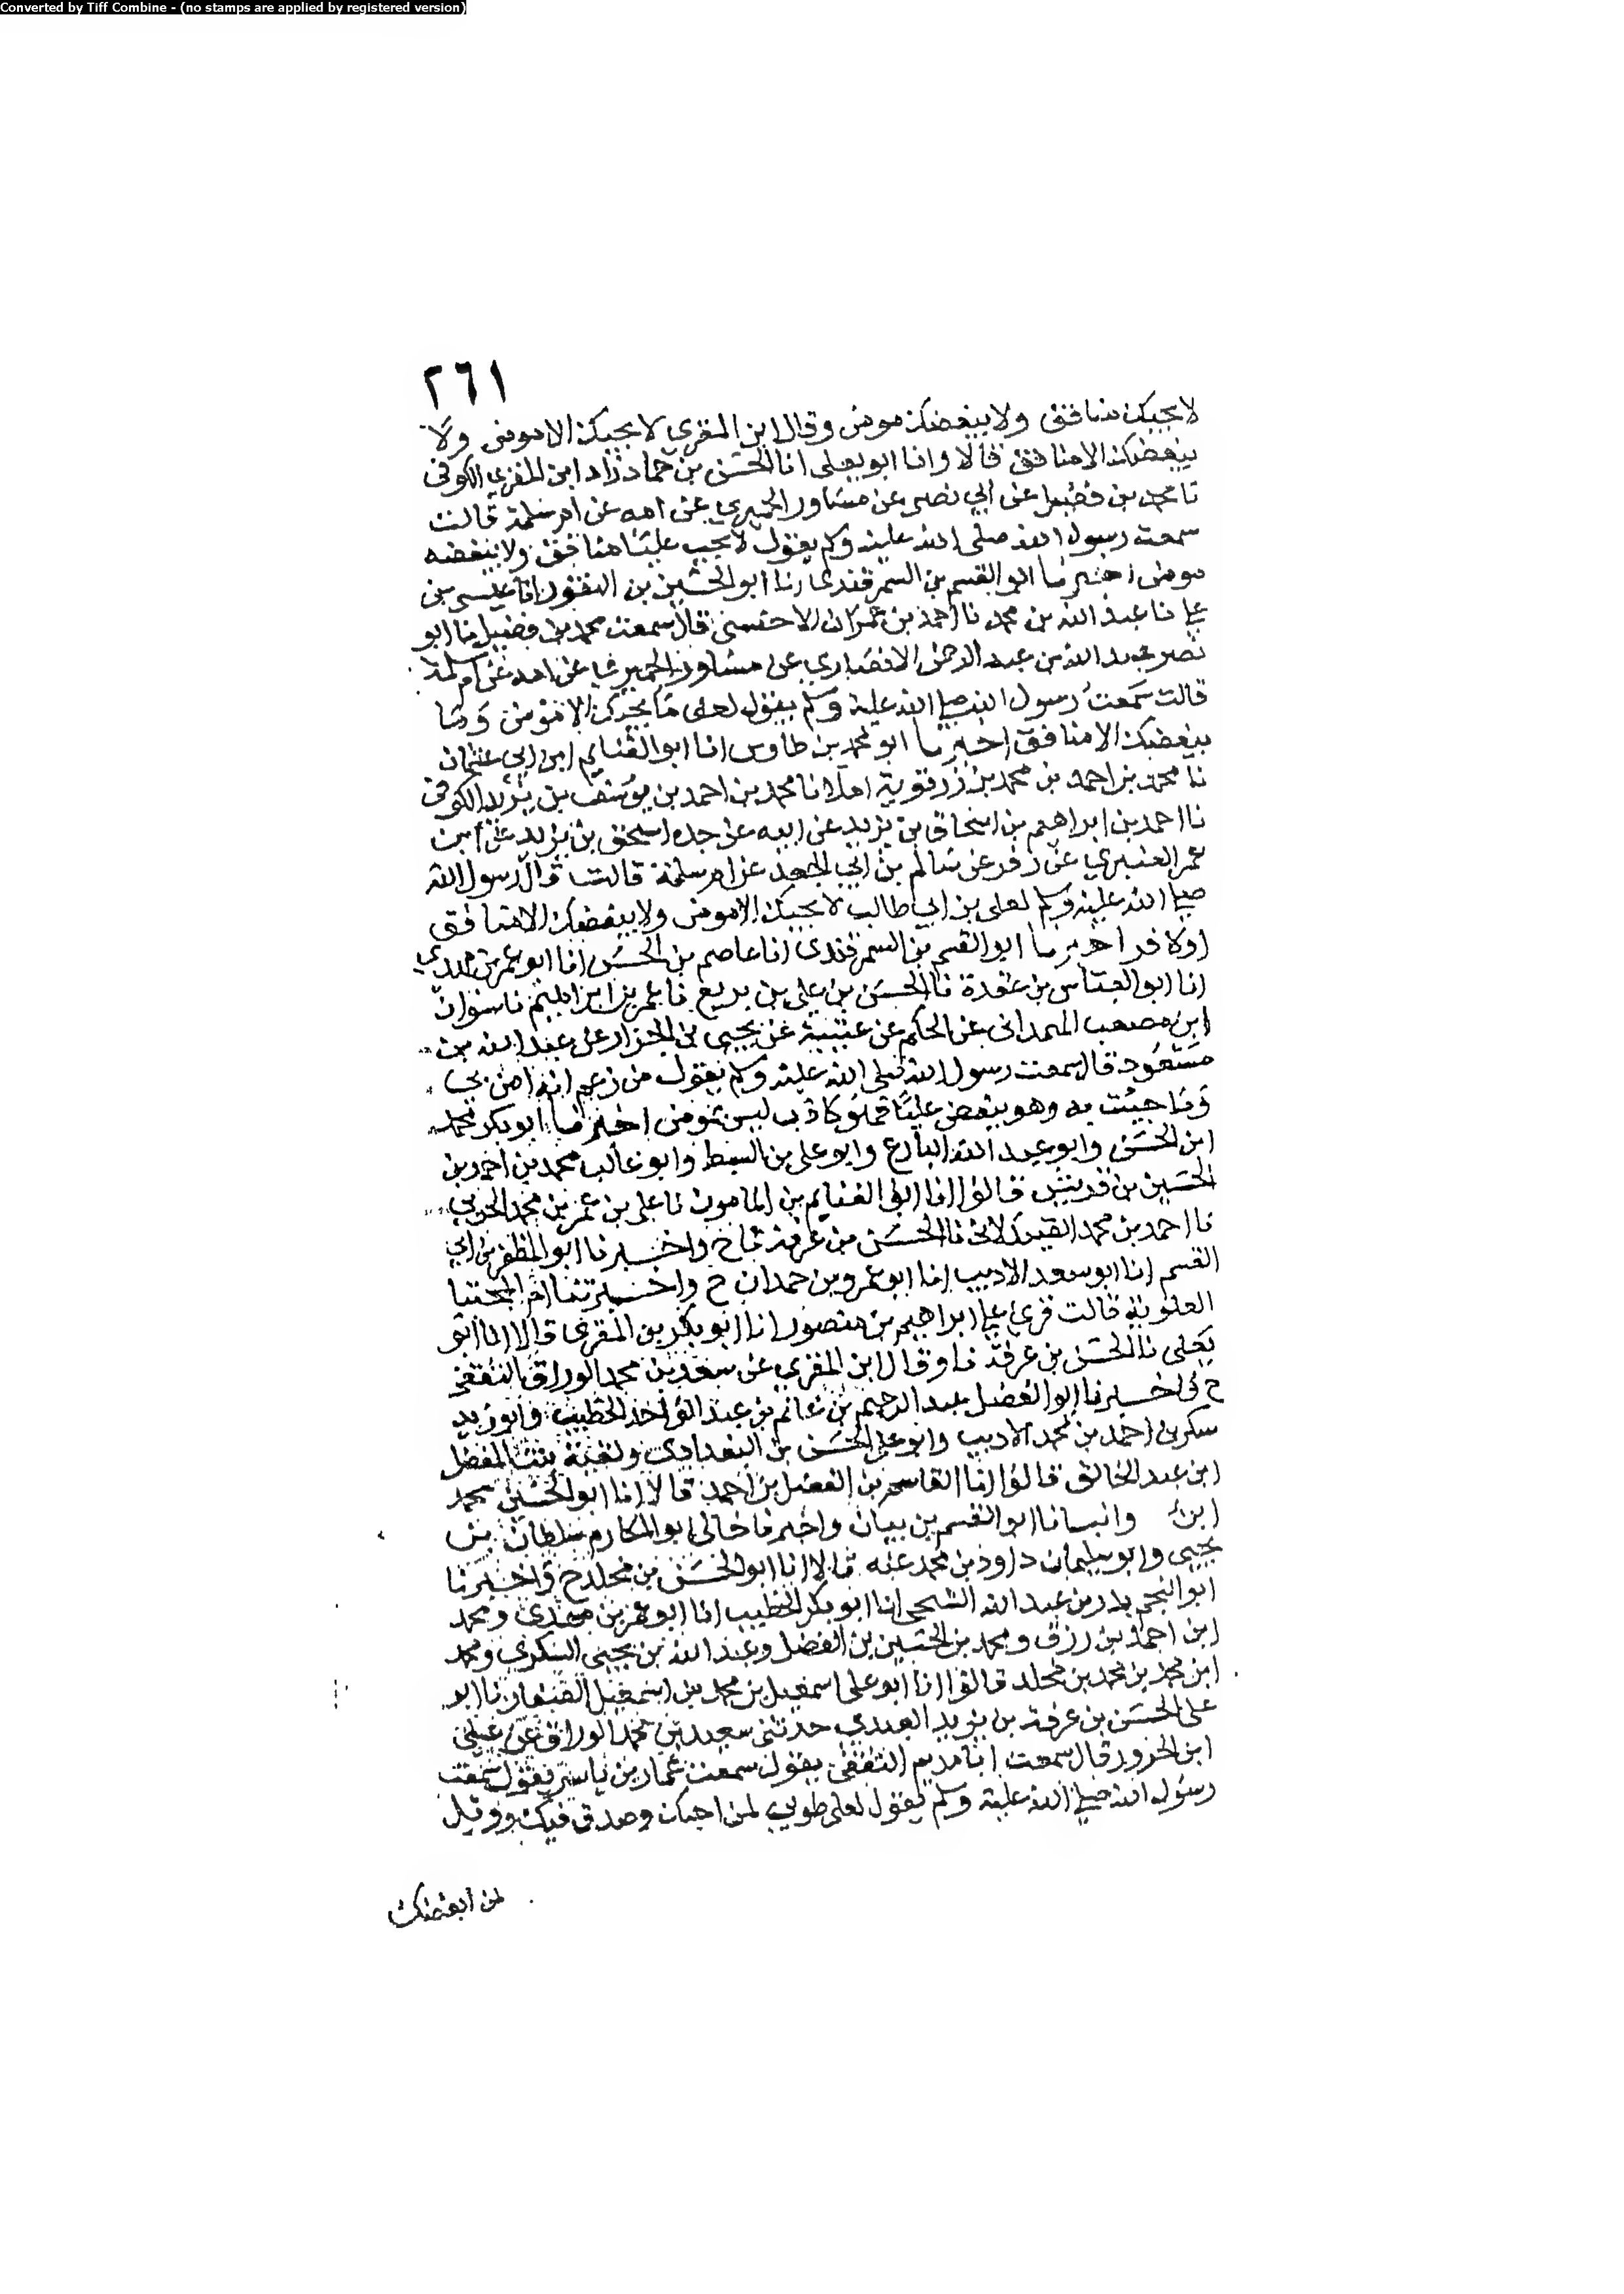 Converted by Tiff Combine - (no stamps are applied by registered version)
٢٦١
لا يحبك منافق ولا يبغضك مومن وقال ابن المقري لا يحبك الا مومن ولا
يبغضك الا منافق قالا وانا ابو يعلى انا الحسن بن حماد زاد ابن المقري الكوفي
نا محمد بن فضيل عن ابي نصر عن مساور الحميري عن امه عن ام سلمة قالت
سمعت رسول الله صلى الله عليه وسلم يقول لا يحب عليا منافق ولا يبغضه
مومن اخبرنا ابو القسم بن السمرقندي انا ابو الحسين بن النقور انا عيسى بن
علي نا عبد الله بن محمد نا احمد بن عمران الاخنسي قال سمعت محمد بن فضيل نا ابو
نصر عبد الله بن عبد الرحمن الانصاري عن مساور الحميري عن امه عن ام سلمة
قالت سمعت رسول الله صلى الله عليه وسلم يقول لعلي ما يحبك الا مومن وما
يبغضك الا منافق اخبرنا ابو محمد بن طاوس انا ابو الغنايم ابن ابي عثمان
نا محمد بن احمد بن محمد بن زرقوية املا نا محمد بن احمد بن يوسف بن يزيد الكوفي
نا احمد بن ابراهيم بن اسحاق بن يزيد عن ابيه عن جده اسحق بن يزيد عن ابن
عمر العنبري عن زفر عن سالم بن ابي الجعد عن ام سلمة قالت قال رسول الله
صلى الله عليه وسلم لعلي بن ابي طالب لا يحبك الا مومن ولا يبغضك الا منافق
او كافر اخبرنا ابو القسم بن السمرقندي انا عاصم بن الحسن انا ابو عمر بن مهدي
انا ابو العباس بن عقدة نا الحسن بن علي بن بزيع نا عمر بن ابراهيم نا سوار
ابن مصعب الهمداني عن الحكم عن عتيبة عن يحيى بن الجزار عن عبد الله بن
مسعود قال سمعت رسول الله صلى الله عليه وسلم يقول من زعم انه امن بي
وما جيئت به وهو يبغض عليا فهو كاذب ليس بمومن اخبرنا ابو بكر محمد
ابن الحسن وابو عبد الله البارع وابو علي بن السبط وابو غالب محمد بن احمد بن
الحسين بن قريش قالوا انا ابو الغنايم بن المامون نا علي بن عمر بن محمد الحربي
نا احمد بن محمد الصيدلاني نا الحسن بن عرفة ح واخبرنا ابو المظفر بن ابي
القسم انا ابو سعد الاديب انا ابو عمرو بن حمدان ح واخبرتنا ام المجتبا
العلوية قالت قري علي ابراهيم بن منصور انا ابو بكر بن المقري قالا انا ابو
يعلى نا الحسن بن عرفة نا وقال ابن المقري عن سعد بن محمد الوراق الثقفي
ح واخبرنا ابو الفضل عبد الرحيم بن غانم بن عبد الواحد الخطيب وابو زيد
سكر بن احمد بن محمد الاديب وابو علي الحسن بن البغدادي بنت المفضل
ابن عبد الخالق قالوا انا القاسم بن الفضل بن احمد قالا انا ابو الحسين محمد
ابن وانبانا ابو القسم بن بيان واخبرنا خالي ابو المكارم سلطان بن
يحيى وابو سليمان داود بن محمد عنه قالا انا ابو الحسن بن مخلد ح واخبرنا
ابو النجم بدر بن عبد الله الشيحي انا ابو بكر الخطيب انا ابو عمر بن مهدي ومحمد
ابن احمد بن رزق ومحمد بن الحسين بن الفضل وعبد الله بن يحيى السكري ومحمد
ابن محمد بن محمد بن مخلد قالوا انا ابو علي اسمعيل بن محمد بن اسمعيل الصفار نا ابو
علي الحسن بن عرفة بن يزيد العبدي حدثني سعيد بن محمد الوراق عن علي
ابن الحزور قال سمعت ابا مريم الثقفي يقول سمعت عمار بن ياسر يقول سمعت
رسول الله صلى الله عليه وسلم يقول لعلي طوبى لمن احبك وصدق فيك وويل
لمن ابغضك